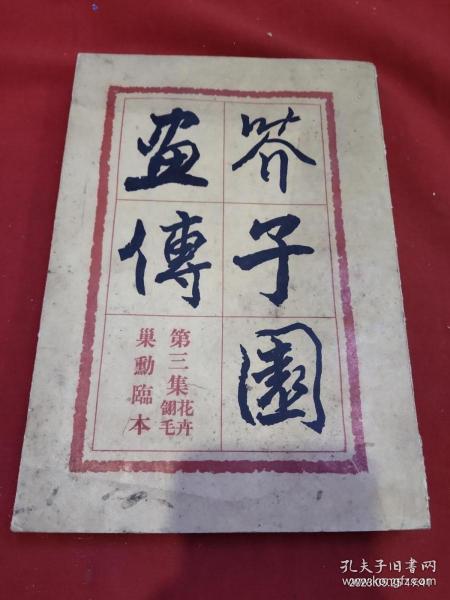 芥子園
畫傳
第三集花卉翎毛
巢勳臨本
孔夫子旧书网